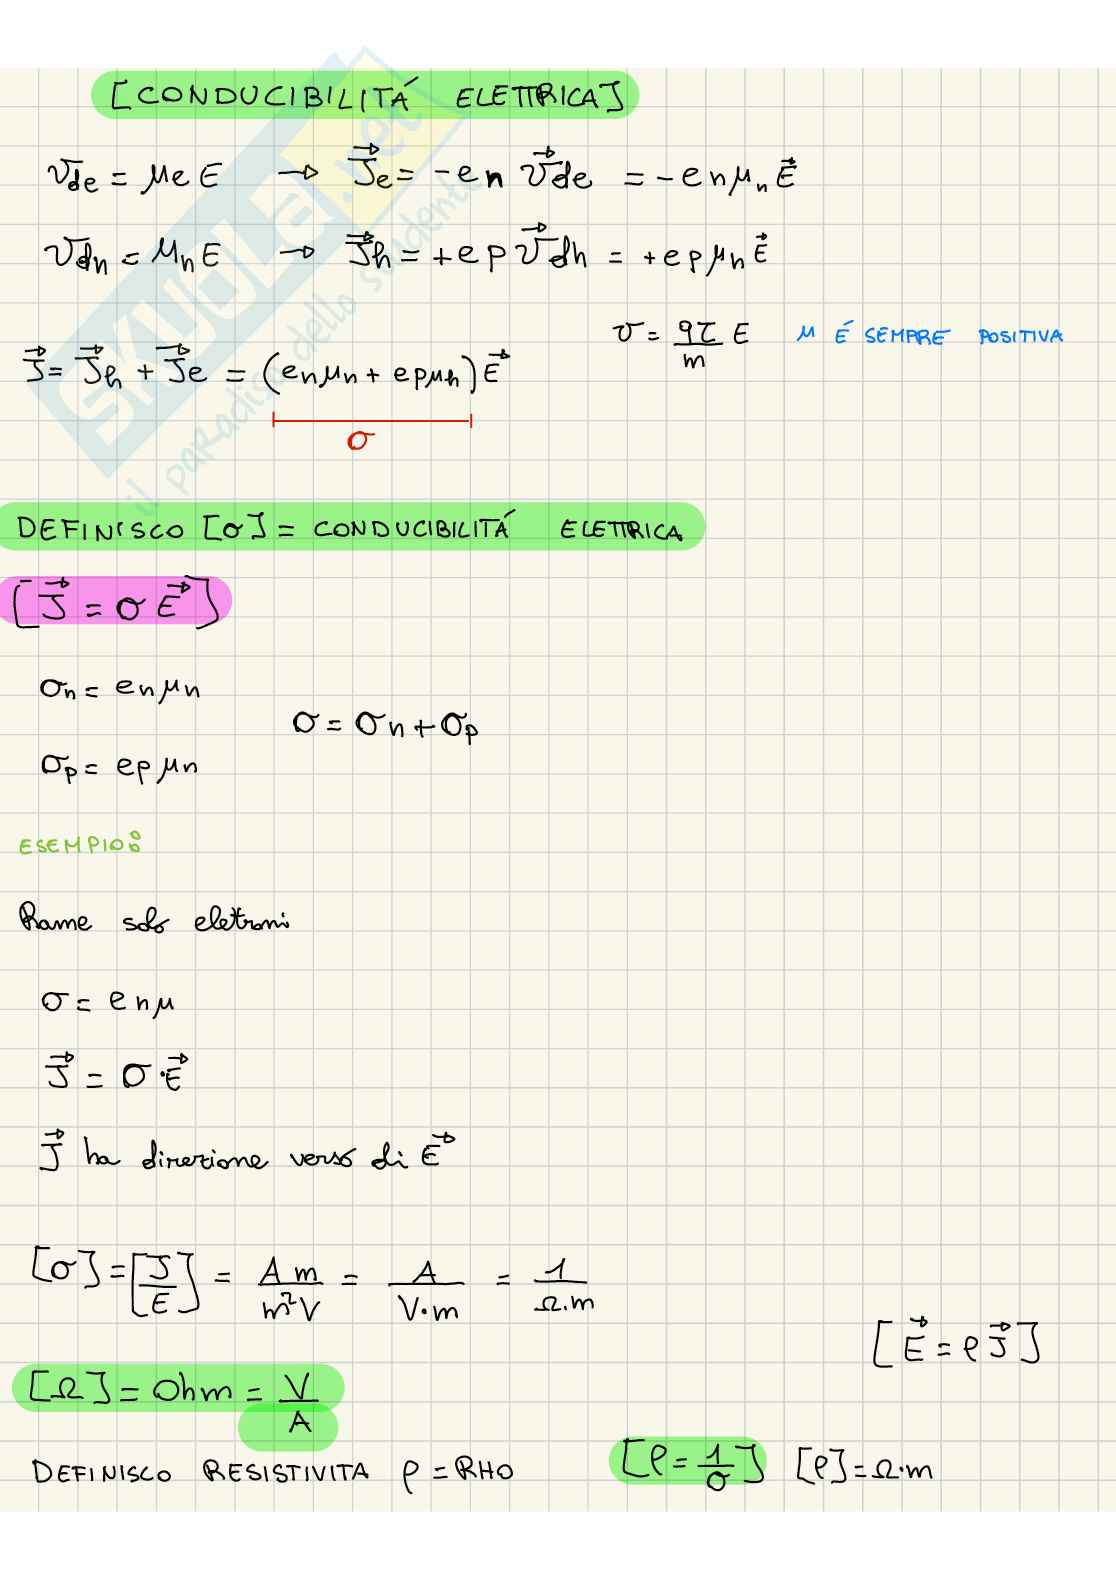 [CONDUCIBILITÁ ELETTRICA]
v_de = μe E → J⃗e = -en v⃗de = -enμn E⃗
v_dh = μh E → J⃗h = +ep v⃗dh = +epμh E⃗
v = qτ/m E μ É SEMPRE POSITIVA
J⃗ = J⃗h + J⃗e = (enμn + epμh) E⃗
σ
DEFINISCO [σ] = CONDUCIBILITÁ ELETTRICA
[J⃗ = σ E⃗]
σn = enμn
σ = σn + σp
σp = epμn
ESEMPIO:
Rame solo elettroni
σ = enμ
J⃗ = σ·E⃗
J⃗ ha direzione verso di E⃗
[σ] = [J/E] = A m/m²V = A/V·m = 1/Ω·m
[E⃗ = ρJ⃗]
[Ω] = Ohm = V/A
DEFINISCO RESISTIVITA ρ = RHO [ρ = 1/σ] [ρ] = Ω·m
SKUOLA.net
il paradiso dello studente